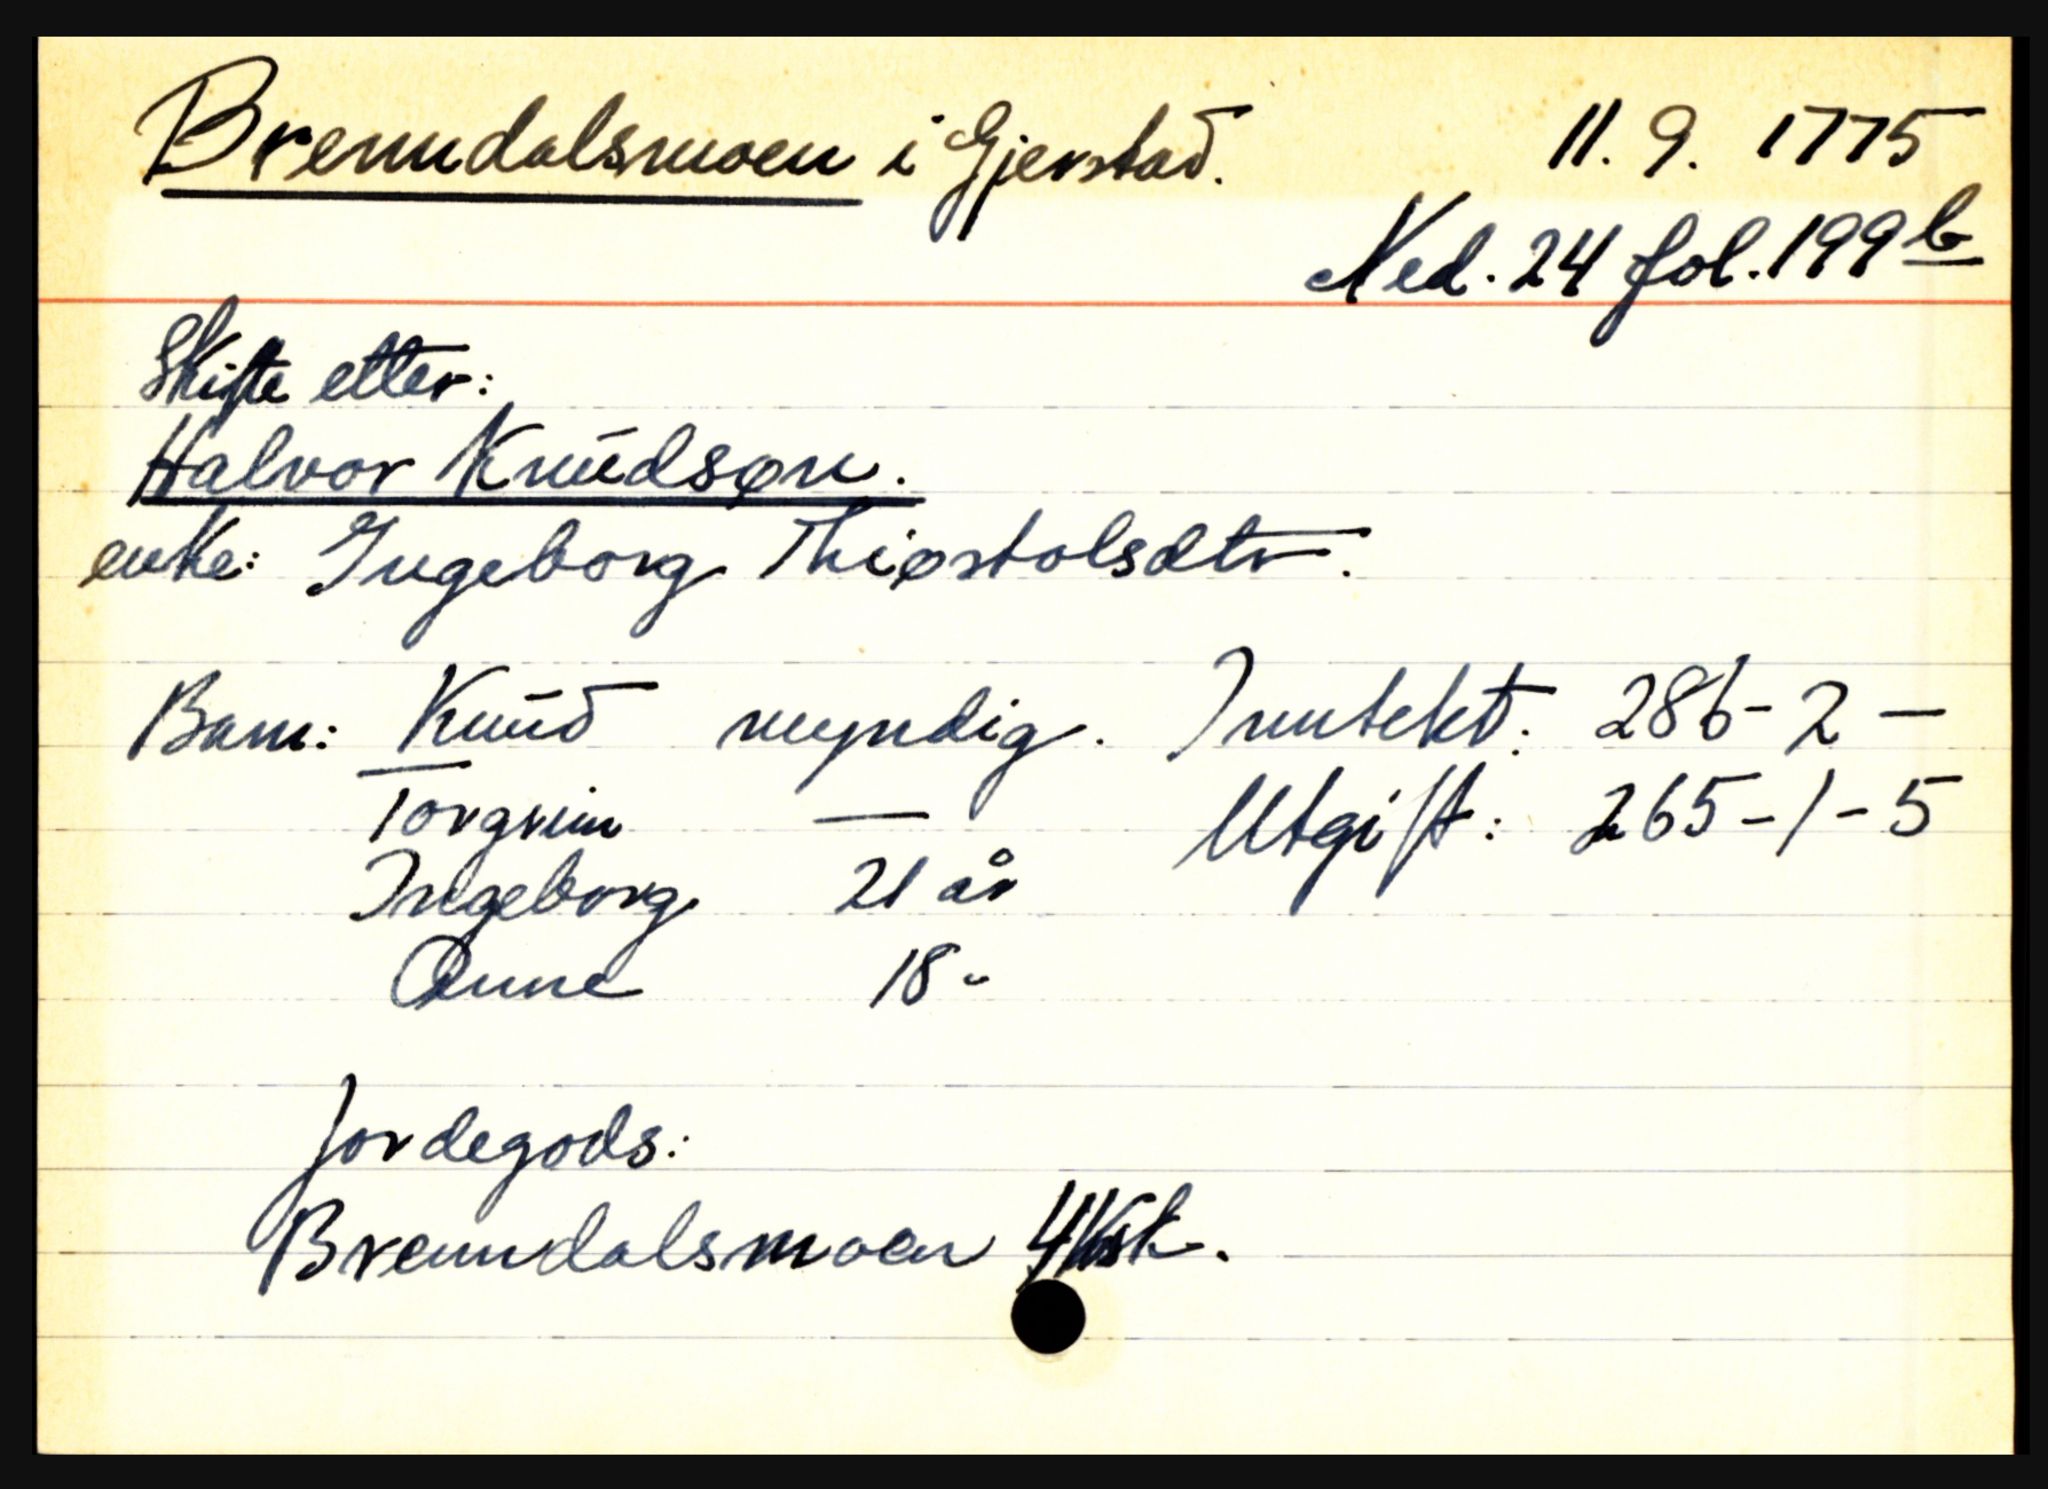 Brenndalsmoen i Gjerstad. 11. 9. 1775
Ned. 24 fol. 199 b
Skifte etter:
Halvor Knudsøn.
enke: Ingeborg Thiøstolsdtr.
Barn: Knud myndig. Inntekt: 286-2 —
Torgrim — Utgift: 265-1-5
Ingeborg 21 år
Anne 18 "
Jordegods:
Brenndalsmoen